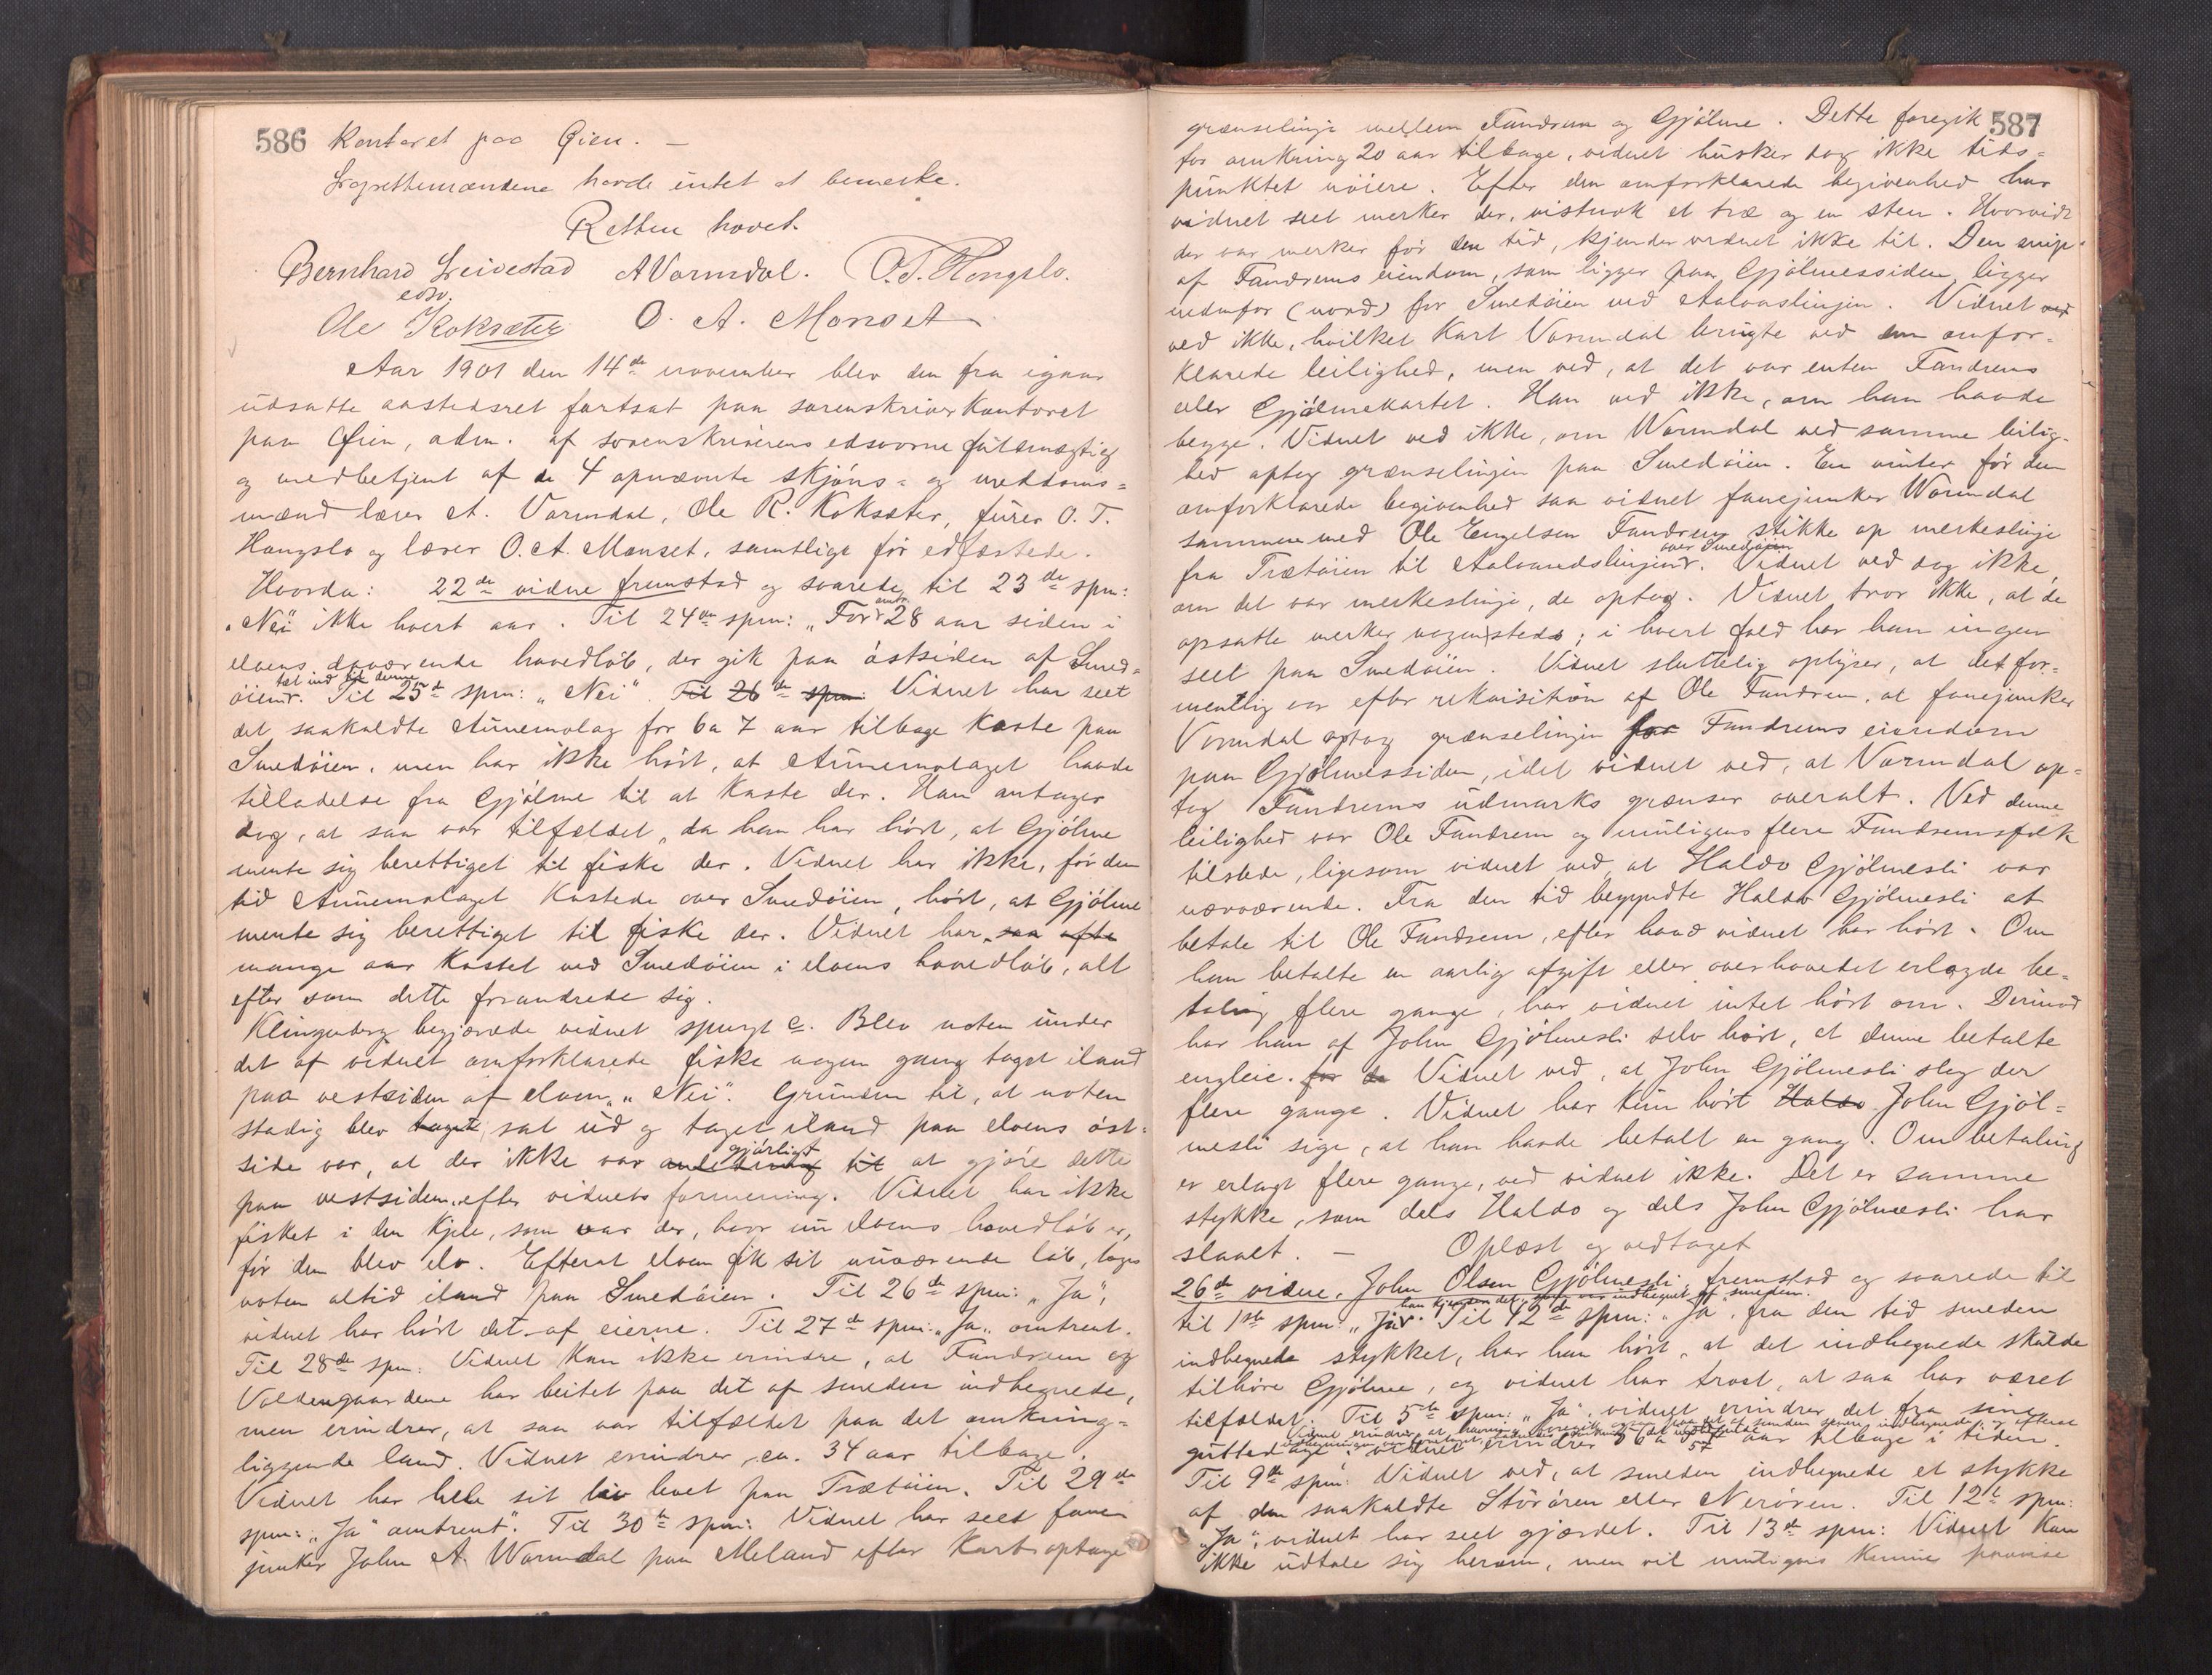 586 Kontoret paa Øien. —
Lagrettemændene havde intet at bemerke.
Retten hævet.
Bernhard Leivestad AVormdal. O.T. Hongslo.
edsv.
Ole Koksæter O. A. Monset
Aar 1901 den 14de november blev den fra igaar
udsatte aastedsret fortsat paa sorenskriverkontoret
paa Øien, adm. af sorenskriverens edsvorne fuldmægtig
og medbetjent af de 4 opnævnte skjøns= og meddoms=
mænd lærer A. Vormdal, Ole R. Koksæter, furer O. T.
Hongslo og lærer O. A. Monset, samtlige før edfæstede.
Hvorda: 22de vidne fremstod og svarede til 23de spm:
„Nei“ ikke hvert aar. Til 24de spm: „For omtr. 28 aar siden i
elvens daværende hovedløb, der gik paa østsiden af Smed=
tæt ind til denne
øien. Til 25de spm: „Nei“. Til 26de spm: Vidnet har seet
det saakaldte Aunemolag for 6 a 7 aar tilbage kaste paa
Smedøien, men har ikke hørt, at Aunemolaget havde
tilladelse fra Gjølme til at kaste der. Han antager
dog, at saa var tilfældet, da han har hørt, at Gjølme
mente sig berettiget til fiske der. Vidnet har ikke, før den
tid Aunemolaget kastede over Smedøien, hørt, at Gjølme
mente sig berettiget til fiske der. Vidnet har saa ofte
mange aar kastet ved Smedøien i elvens hovedløb, alt
efter som dette forandrede sig.
Klingenberg begjærede vidnet spurgt c. Blev noten under
det af vidnet omforklarede fiske nogen gang taget iland
paa vestsiden af elven, „Nei“. Grunden til, at noten
stadig blev taget, sat ud og taget iland paa elvens øst=
gjørligt
side var, at der ikke var anledning til at gjøre dette
paa vestsiden, efter vidnets formening. Vidnet har ikke
fisket i den kjele, som var der, hvor nu elvens hovedløb er,
før den blev elv. Efterat elven fik sit nuværende løb, toges
noten altid iland paa Smedøien. Til 26de spm: „Ja“,
vidnet har hørt det af eierne. Til 27de spm: „Ja“ omtrent.
Til 28de spm: Vidnet kan ikke erindre, at Fandrem og
Voldengaardene har beitet paa det af smeden indhegnede,
men erindrer, at saa var tilfældet paa det omkring=
liggende land. Vidnet erindrer ca. 34 aar tilbage.
Vidnet har hele sit liv levet paa Trætøien. Til 29de
spm: „Ja“ omtrent“. Til 30te spm: Vidnet har seet fane=
junker John A. Wormdal paa Meland efter kart optage
587
grænselinje mellem Fandrem og Gjølme. Dette foregik
for omkring 20 aar tilbage, vidnet husker dog ikke tids=
punktet nøiere. Efter den omforklarede begivenhed har
vidnet seet merker der, vistnok et træ og en sten. Hvorvidt
der var merker før den tid, kjender vidnet ikke til. Den snip
af Fandrems eiendom, som ligger paa Gjølmessiden, ligger
nedenfor (nord) for Smedøien ved Aalvaslinjen. Vidnet ved
ved ikke, hvilket kart Vormdal brugte ved den omfor=
klarede leilighed, men ved, at det var enten Fandrems
eller Gjølmekartet. Han ved ikke, om han havde
begge. Vidnet ved ikke, om Wormdal ved samme leilig=
hed optog grænselinjen paa Smedøien. En vinter før den
omforklarede begivenhed saa vidnet fanejunker Wormdal
sammen med Ole Engelsen Fandrem stikke op merkeslinje
over Smedøien
fra Trætøien til Aalvandslinjen. Vidnet ved dog ikke,
om det var merkeslinje, de optog. Vidnet tror ikke, at de
opsatte merker nogensteds; i hvert fald har han ingen
seet paa Smedøien. Vidnet sluttelig oplyser, at det for=
mentlig var efter rekvisition af Ole Fandrem, at fanejunker
Vormdal optog grænselinjen for Fandrems eiendom
paa Gjølmessiden, idet vidnet ved, at Vormdal op=
tog Fandrems udmarks grænser overalt. Ved denne
leilighed var Ole Fandrem og muligens flere Fandremsfolk
tilstede, ligesom vidnet ved, at Haldo Gjølmesli var
nærværende. Fra den tid begyndte Haldo Gjølmesli at
betale til Ole Fandrem, efter hvad vidnet har hørt. Om
han betalte en aarlig afgift eller overhovedet erlagde be=
taling flere gange, har vidnet intet hørt om. Derimod
har han af John Gjølmesli selv hørt, at denne betalte
engleie. for da Vidnet ved, at John Gjølmesli slog der
flere gange. Vidnet har kun hørt Haldo John Gjøl=
mesli sige, at han havde betalt en gang. Om betaling
er erlagt flere gange, ved vidnet ikke. Det er samme
stykke, som dels Haldo og dels John Gjølmesli har
slaaet. — Oplæst og vedtaget
26de vidne, John Olsen Gjølmesli, fremstod og svarede til
han kjender det, som var indhegnet af smeden.
til 1ste spm: „Ja“. Til 42de spm: „Ja“, fra den tid smeden
indhegnede stykket, har han hørt, at det indhegnede skulde
tilhøre Gjølme, og vidnet har troet, at saa har været
tilfældet. Til 5te spm: „Ja“, vidnet erindrer det fra sine
Vidnet erindrer, at havning foregik ogsaa paa det af smeden senere indhegnede, og efterat
gutteaar vidnet erindrer 56 a 57 aar tilbage i tiden.
Til 9de spm: Vidnet ved, at smeden indhegnede et stykke
af den saakaldte Storøren eller Nerøren. Til 12te spm:
„Ja“, vidnet har seet gjærdet. Til 13de spm: Vidnet kan
ikke udtale sig herom, men vil muligens kunne paavise